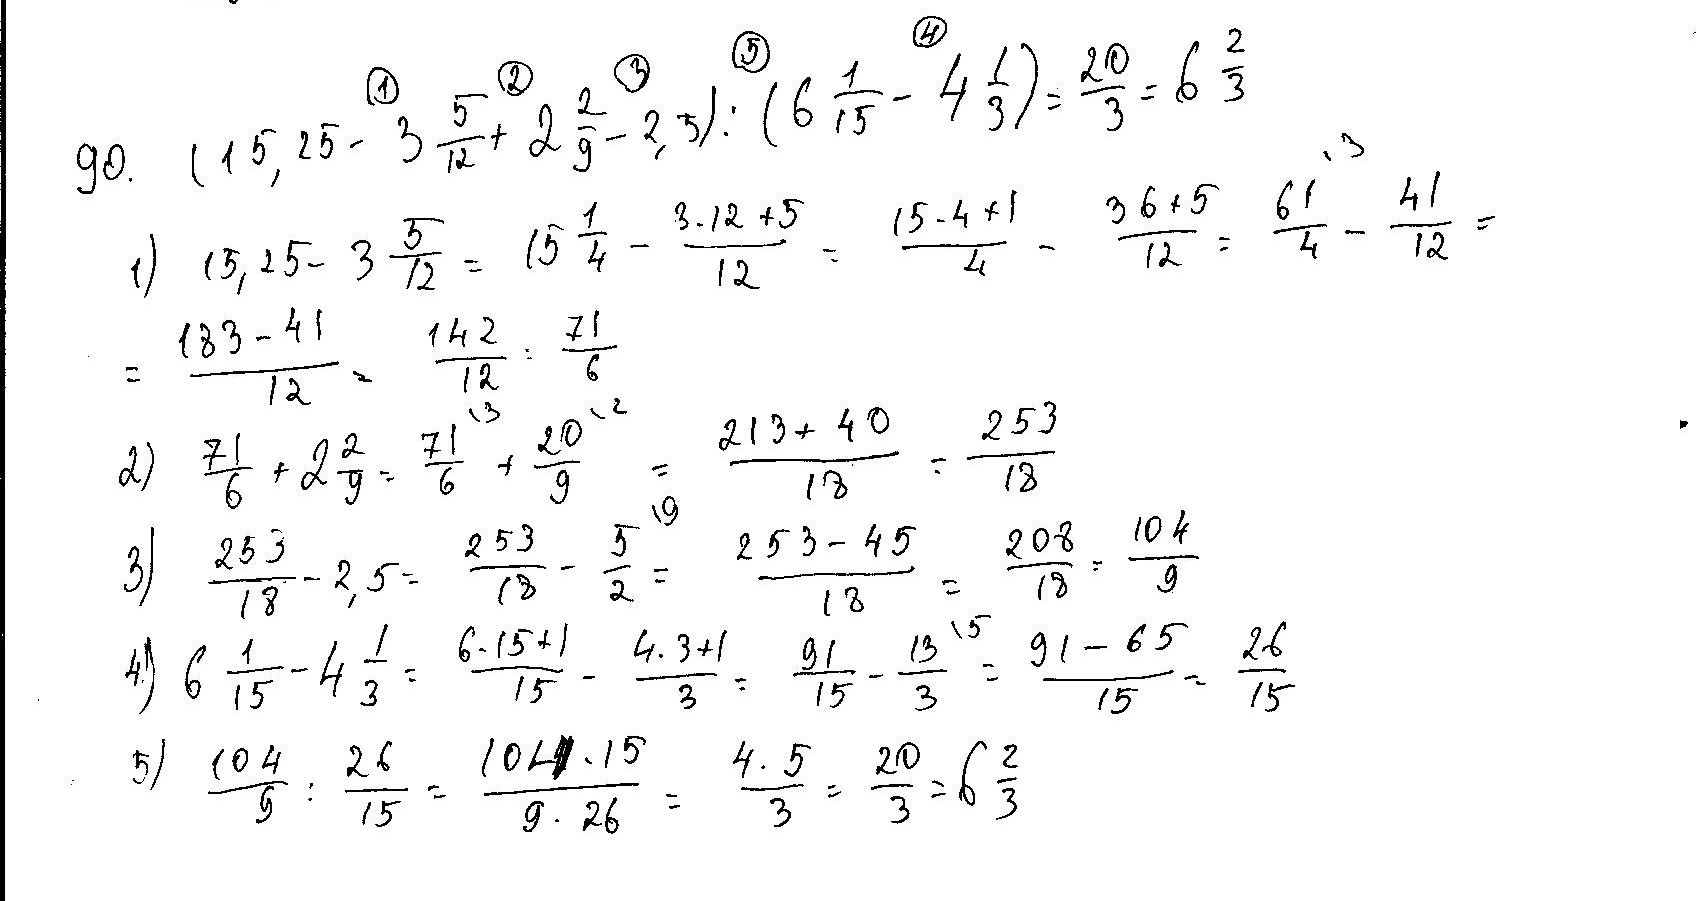 ① ② ③ ⑤ ④
90. (15,25 - 3 5/12 + 2 2/9 - 2,5) : (6 1/15 - 4 1/3) = 20/3 = 6 2/3
1) 15,25 - 3 5/12 = 15 1/4 - (3·12+5)/12 = (15·4+1)/4 - (36+5)/12 = 61/4 \3 - 41/12 =
= (183-41)/12 = 142/12 = 71/6
2) 71/6 + 2 2/9 = 71/6 \3 + 20/9 \2 = (213+40)/18 = 253/18
3) 253/18 - 2,5 = 253/18 - 5/2 \9 = (253-45)/18 = 208/18 = 104/9
4) 6 1/15 - 4 1/3 = (6·15+1)/15 - (4·3+1)/3 = 91/15 - 13/3 \5 = (91-65)/15 = 26/15
5) 104/9 : 26/15 = (104·15)/(9·26) = (4·5)/3 = 20/3 = 6 2/3